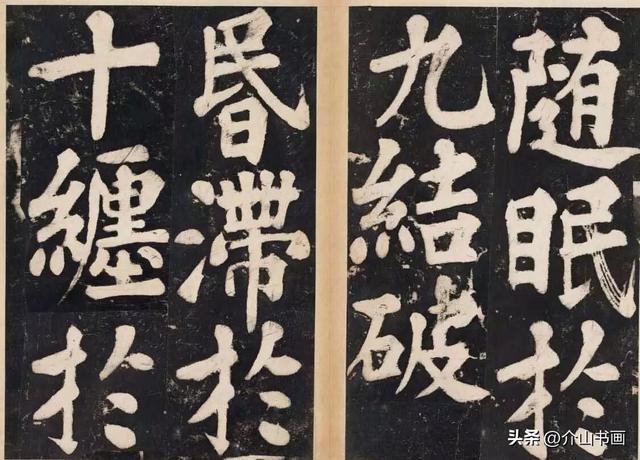 随眠於
九結破
昬滯於
十纏於
头条 @介山书画